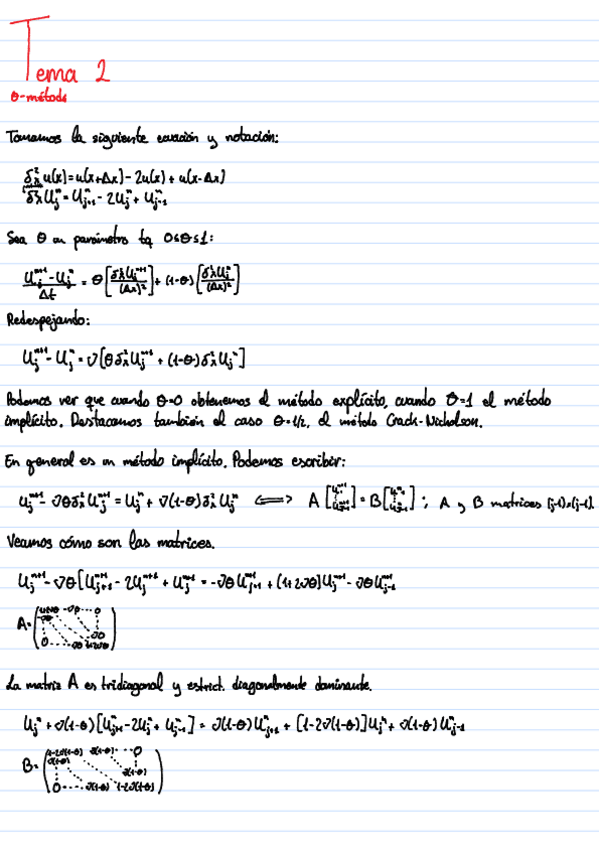 Tema 2
θ-método
Tomamos la siguiente ecuación y notación:
δ²ₓu(x)=u(x+Δx)-2u(x)+u(x-Δx)
δ²ₓUⱼⁿ=Uⱼ₊₁ⁿ-2Uⱼⁿ+Uⱼ₋₁ⁿ
Sea θ un parámetro tq 0≤θ≤1:
(Uⱼⁿ⁺¹-Uⱼⁿ)/Δt = θ[δ²ₓUⱼⁿ⁺¹/(Δx)²]+(1-θ)[δ²ₓUⱼⁿ/(Δx)²]
Redespejando:
Uⱼⁿ⁺¹-Uⱼⁿ=ν[θδ²ₓUⱼⁿ⁺¹+(1-θ)δ²ₓUⱼⁿ]
Podemos ver que cuando θ=0 obtenemos el método explícito, cuando θ=1 el método
implícito. Destacamos también el caso θ=1/2, el método Crack-Nicholson.
En general es un método implícito. Podemos escribir:
Uⱼⁿ⁺¹-νθδ²ₓUⱼⁿ⁺¹=Uⱼⁿ+ν(1-θ)δ²ₓUⱼⁿ ⟺ A[U₁ⁿ⁺¹ ⋮ Uⱼ₋₁ⁿ⁺¹]=B[U₁ⁿ ⋮ Uⱼ₋₁ⁿ]; A y B matrices (j-1)×(j-1).
Veamos cómo son las matrices.
Uⱼⁿ⁺¹-νθ[Uⱼ₊₁ⁿ⁺¹-2Uⱼⁿ⁺¹+Uⱼ₋₁ⁿ⁺¹=-νθUⱼ₊₁ⁿ⁺¹+(1+2νθ)Uⱼⁿ⁺¹-νθUⱼ₋₁ⁿ⁺¹
A=(1+2νθ -νθ ... 0
-νθ
-νθ
0 ... -νθ 1+2νθ)
La matriz A es tridiagonal y estrict. diagonalmente dominante.
Uⱼⁿ+ν(1-θ)[Uⱼ₊₁ⁿ-2Uⱼⁿ+Uⱼ₋₁ⁿ]=ν(1-θ)Uⱼ₊₁ⁿ+[1-2ν(1-θ)]Uⱼⁿ+ν(1-θ)Uⱼ₋₁ⁿ
B=(1-2ν(1-θ) ν(1-θ) ... 0
ν(1-θ)
ν(1-θ)
0 ... ν(1-θ) 1-2ν(1-θ))